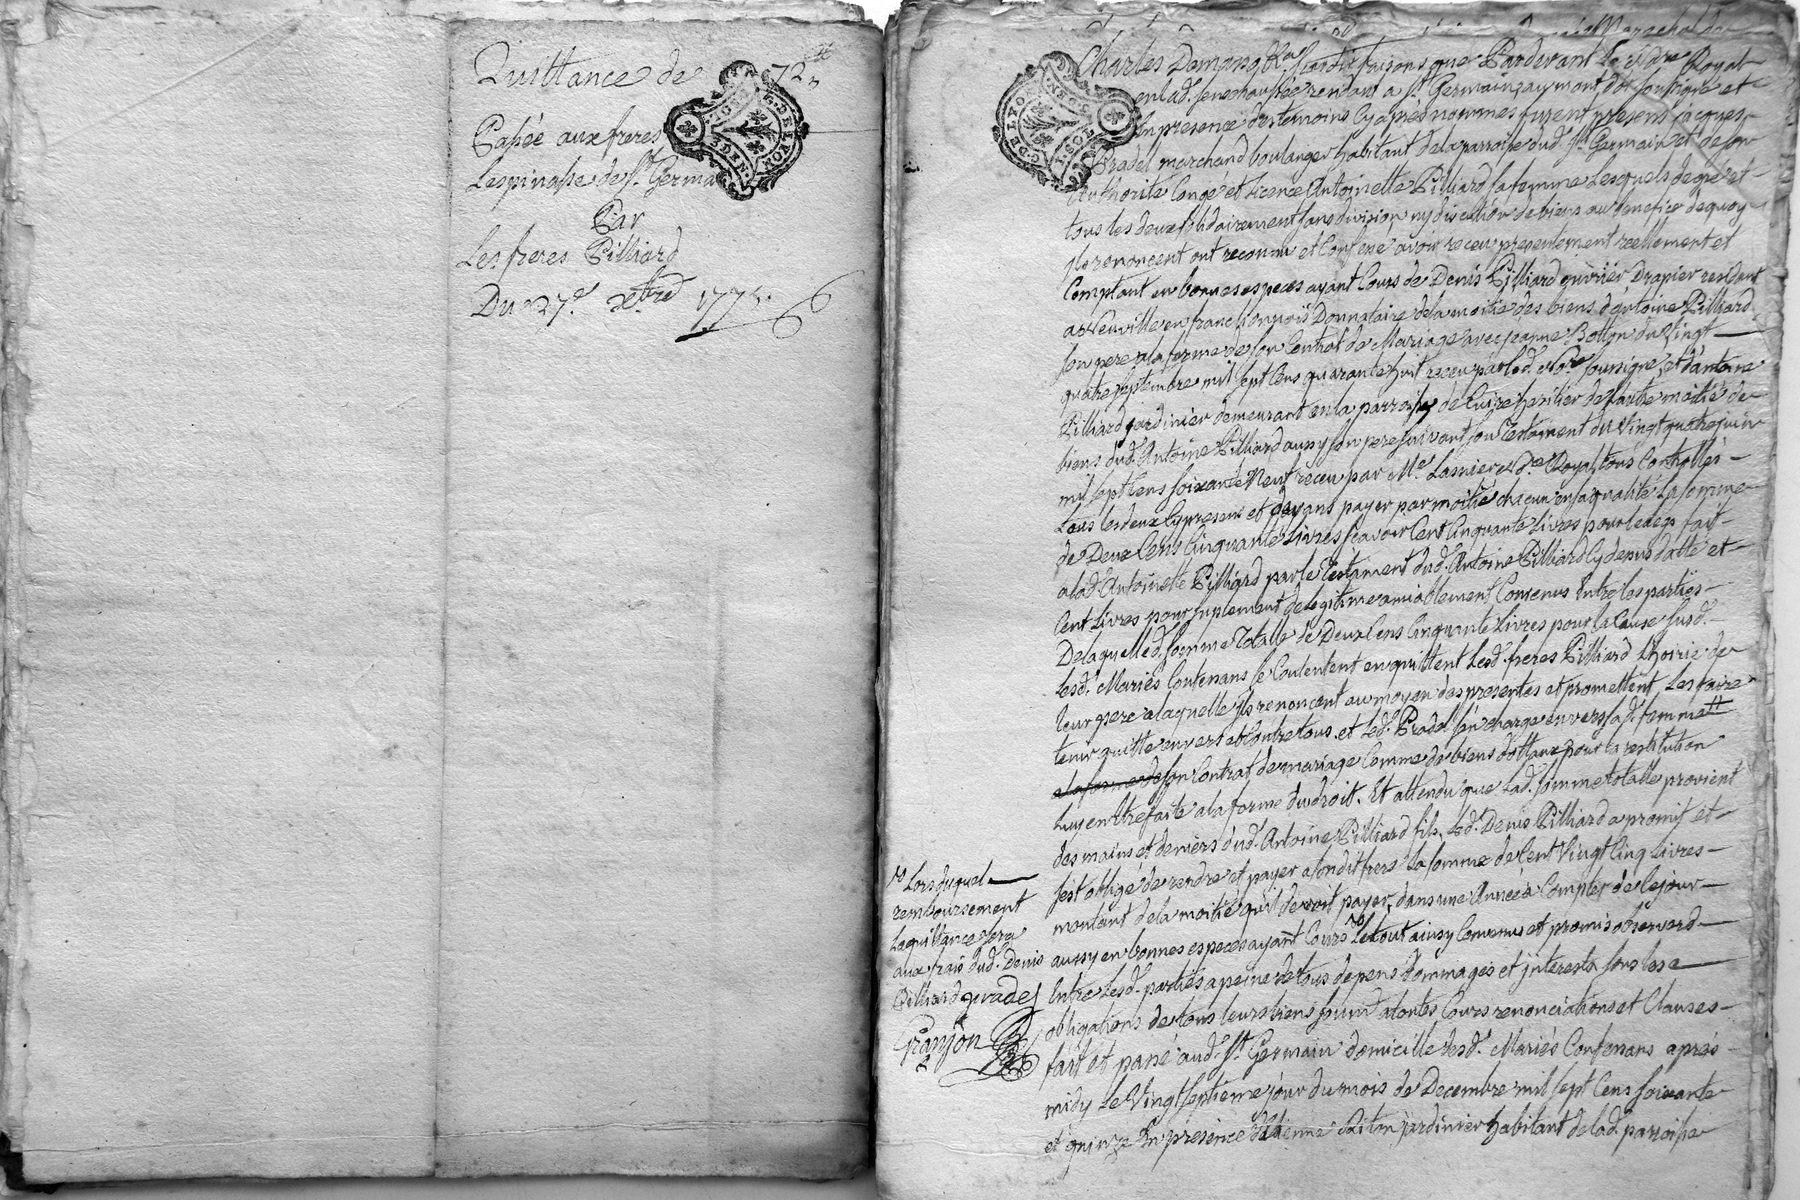 Quittance de 72
Passée aux freres
Lespinasse de St. Germa
Par
Les freres Pilliard
Du 27e. xbre 1775.
Charles Demasso
scavoir faisons que Pardevant Le Nore Royal
en lad. senechaussée residant a St. Germain soussigné et
En presence des temoins cy après nommes furent presens jacques
Pradel marchand boulanger habitant de la parroisse dud. St. Germain et de son
authorité Congé et Licence Antoinette Pilliard sa femme Lesquels de gré et
tous les deux solidairement sans division ny discution de biens au benefice de quoy
ils renoncent ont reconnu et Confessé avoir receu presentement reellement et
Comptant en bonnes especes ayant Cours de Denis Pilliard ouvrier Drapier residant
a Neuville en franc lionnois Donnataire de la moitié des biens d'antoine Pilliard
son pere a la forme de son Contrat de Mariage avec jeanne du vingt
quatre septembre mil sept Cens quarante huit receu par led. Nore soussigné, et d'antoine
Pilliard jardinier demeurant en la parroisse de Cuire heritier de l'autre moitié de
biens dud. Antoine Pilliard aussy son pere suivant son Testament du vingt quatre juin
mil sept Cens soixante Neuf receu par Me. Nre. Royal, tous Controllés
Tous les deux Cy presens et payans par moitié chacun en sa qualité La somme
de Deux Cens Cinquante Livres scavoir Cent Cinquante Livres pour le legs fait
a lad. Antoinette Pilliard par le Testament dud. Antoine Pilliard Cy dessus datté et
Cent Livres pour suplement de legitime amiablement Convenus Entre les parties
De laquelled. somme Totalle de Deux Cens Cinquante Livres pour la Cause susd.
Lesd. Mariés Contenans se Contentent en quittent Lesd. freres Pilliard L'hoirie de
leur pere a laquelle ils renoncent au moyen des presentes et promettent Les faire
tenir quitte envers et Contre tous, et Led. Pradel s'en charge envers sad. femme
a la forme de son Contrat de mariage Comme de biens dottaux pour la restitution
Luy en Etre faite a la forme du droit. Et attendu que Lad. somme totalle provient
des mains et deniers dud. Antoine Pilliard fils, Led. Denis Pilliard a promit et
s'est obligé de rendre et payer a sondit frere La somme de Cent Vingt Cinq Livres
montant de la moitié qu'il devoit payer, dans une Année a Compter de Ce jour
aussy en bonnes especes ayant Cours Le tout ainsy Convenus et promis observer
Entre Lesd. parties a peine de tous depens Dommages et jnterests sous les
obligations de tous leurs biens soumis a toutes Cours renonciations et Clauses
fait et passé aud. St. Germain domicille desd. Mariés Contenans apres
midy Le Vingt septieme jour du mois de Decembre mil sept Cens soixante
et quinze En presence d'Etienne jardinier habitant de lad. parroisse
Lors duquel
remboursement
La quittance sera
aux frais dud. Denis
Pilliard pradel
Granjon